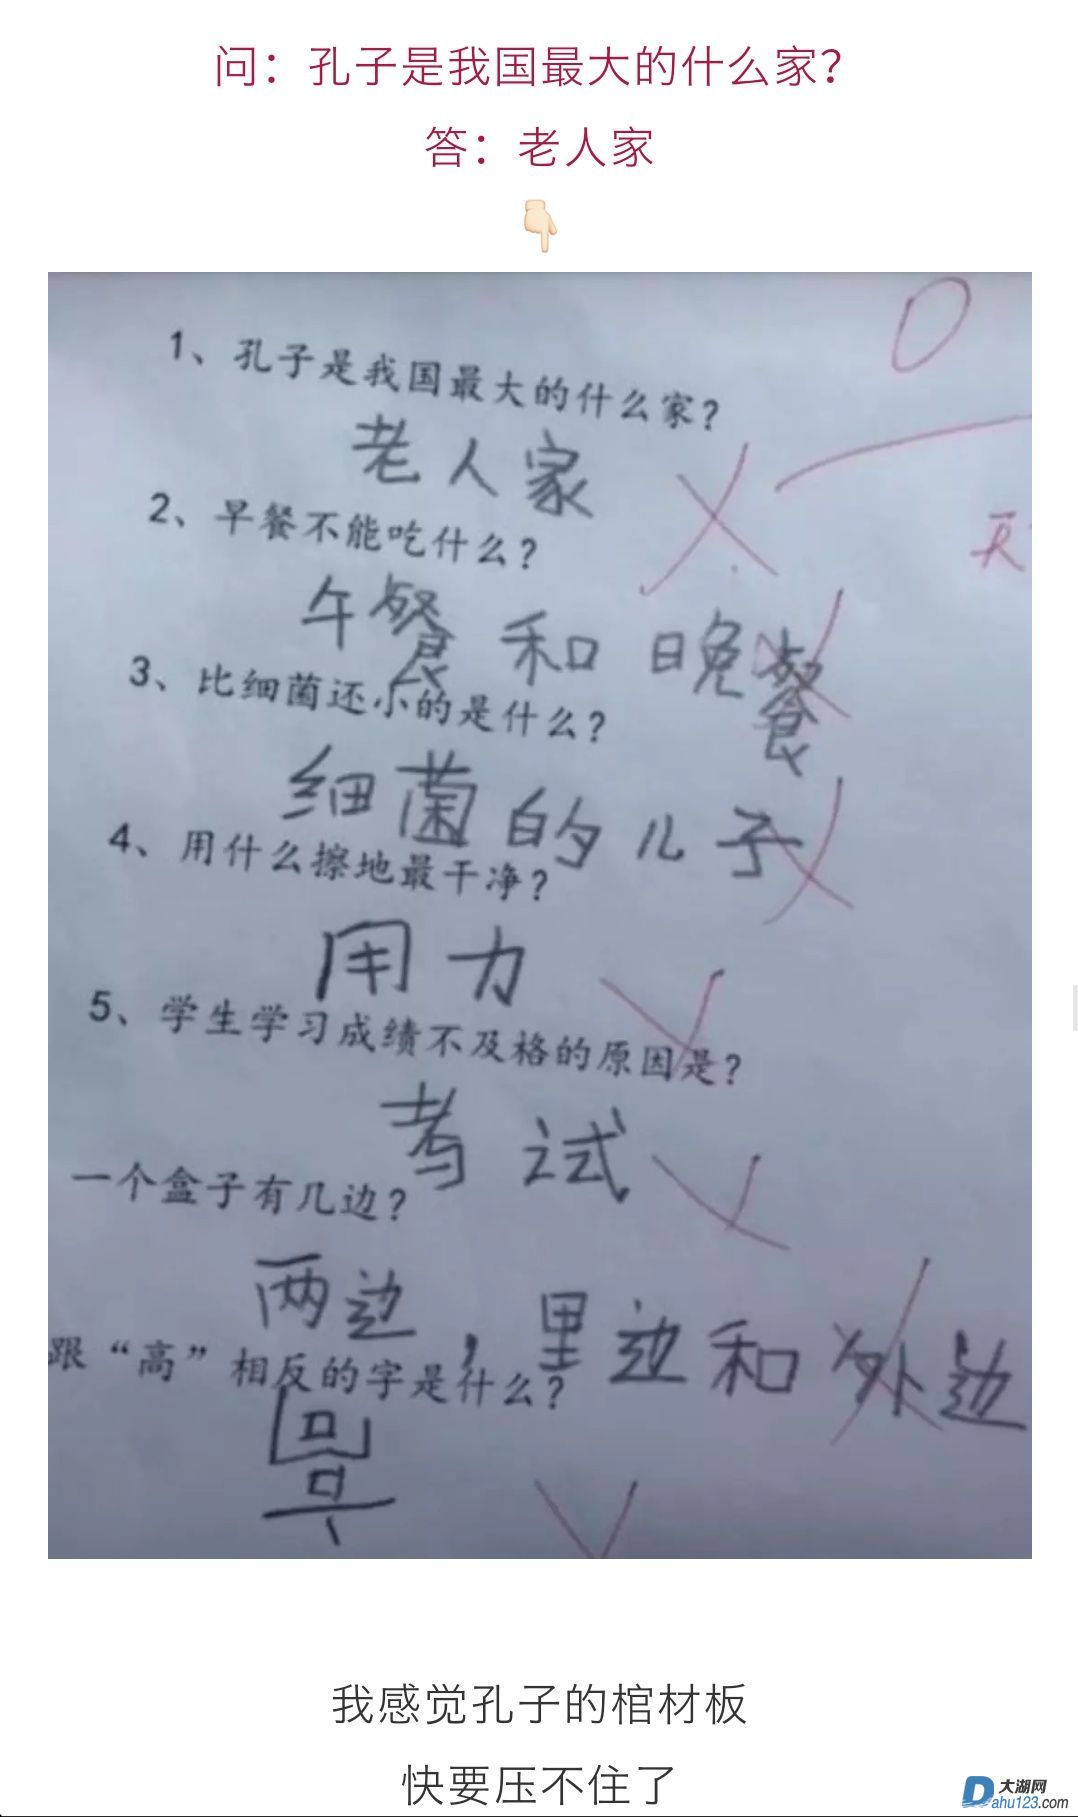 问：孔子是我国最大的什么家？
答：老人家
👇🏻
0
1、孔子是我国最大的什么家？
老人家
2、早餐不能吃什么？
午餐和晚餐
3、比细菌还小的是什么？
细菌的儿子
4、用什么擦地最干净？
用力
5、学生学习成绩不及格的原因是？
考试
一个盒子有几边？
两边，里边和外边
跟“高”相反的字是什么？
我感觉孔子的棺材板
快要压不住了
大湖网
Dahu123.com